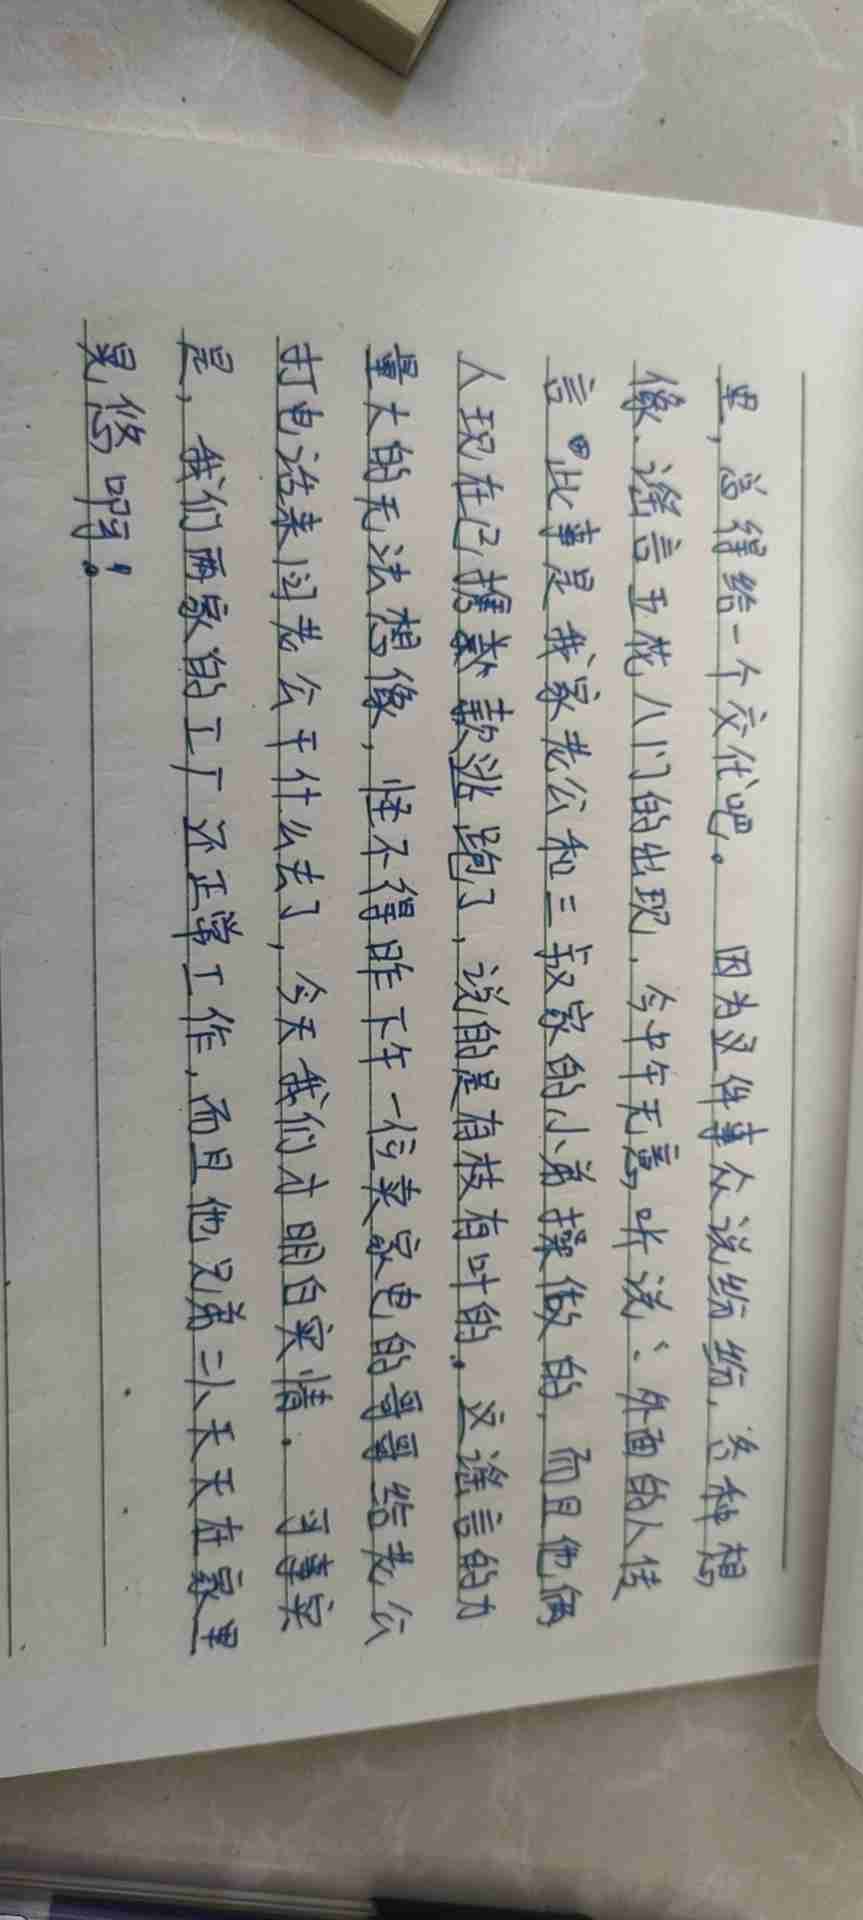 里，总得给一个交代吧。因为这件事众说纷纷，各种想
像、谣言五花八门的出现，今中午无意听说：外面的人传
言。此事是我家老公和三叔家的小弟操做的，而且他俩
人现在已携款逃跑了，说的是有枝有叶的。这谣言的力
量大的无法想像，怪不得昨下午一位卖家电的哥哥给老公
打电话来问老公干什么去了，今天我们才明白实情。可事实
是，我们两家的工厂还正常工作，而且他兄弟二人天天在家里
晃悠啊！